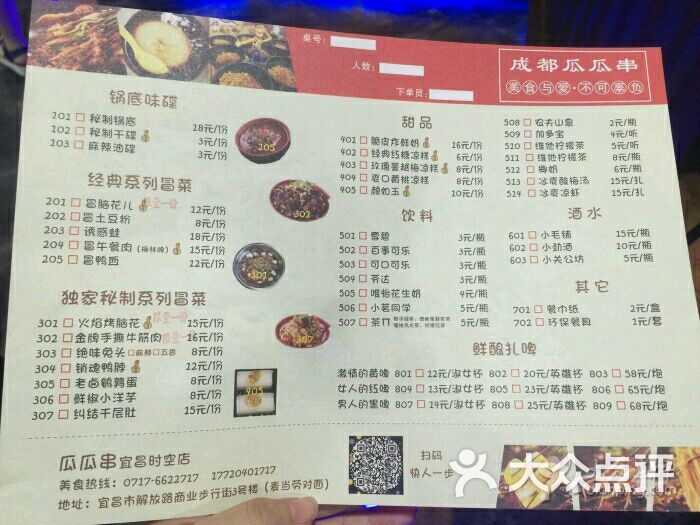 桌号:
人数:
下单员:
成都瓜瓜串
美食与爱·不可辜负
锅底味碟
101 秘制锅底 18元/份
102 秘制干碟 3元/份
103 麻辣油碟 3元/份
205
经典系列冒菜
201 冒脑花儿 12元/份
202 冒土豆粉 8元/份
203 诱惑蛙 18元/份
204 冒午餐肉(梅林牌) 15元/份
205 冒鸭血 12元/份
302
301
独家秘制系列冒菜
301 火焰烤脑花 15元/份
302 金牌手撕牛筋肉 16元/份
303 绝味兔头 麻辣 五香 8元/份
304 销魂鸭脖 12元/份
305 老卤鹌鹑蛋 8元/份
306 鲜椒小洋芋 8元/份
307 纠结千层肚 15元/份
307
405
甜品
401 脆皮炸鲜奶 16元/份
402 经典红糖凉糕 6元/份
403 玫瑰蔓越莓凉糕 8元/份
404 爽口黄桃凉糕 8元/份
405 颜如玉 10元/份
饮料
501 雪碧 3元/瓶
502 百事可乐 3元/瓶
503 可口可乐 3元/瓶
504 芬达 3元/瓶
505 唯怡花生奶 4元/瓶
506 小茗同学 6元/瓶
507 茶π 6元/瓶
508 农夫山泉 2元/瓶
509 加多宝 4元/听
510 维他柠檬茶 5元/听
511 维他柠檬茶 8元/瓶
512 椰奶 6元/瓶
513 冰爽酸梅汤 15元/扎
514 冰爽凉虾 15元/扎
酒水
601 小毛铺 15元/瓶
602 小劲酒 10元/瓶
603 小关公坊 5元/瓶
其它
701 餐巾纸 2元/盒
702 环保餐具 1元/套
鲜酿扎啤
激情的黄啤 801 12元/淑女杯 802 20元/英雄杯 803 58元/炮
女人的红啤 804 13元/淑女杯 805 23元/英雄杯 806 65元/炮
男人的黑啤 807 14元/淑女杯 808 25元/英雄杯 809 68元/炮
瓜瓜串宜昌时空店
美食热线: 0717-6622717 17720401717
地址: 宜昌市解放路商业步行街3号楼(麦当劳对面)
扫码
快人一步
大众点评